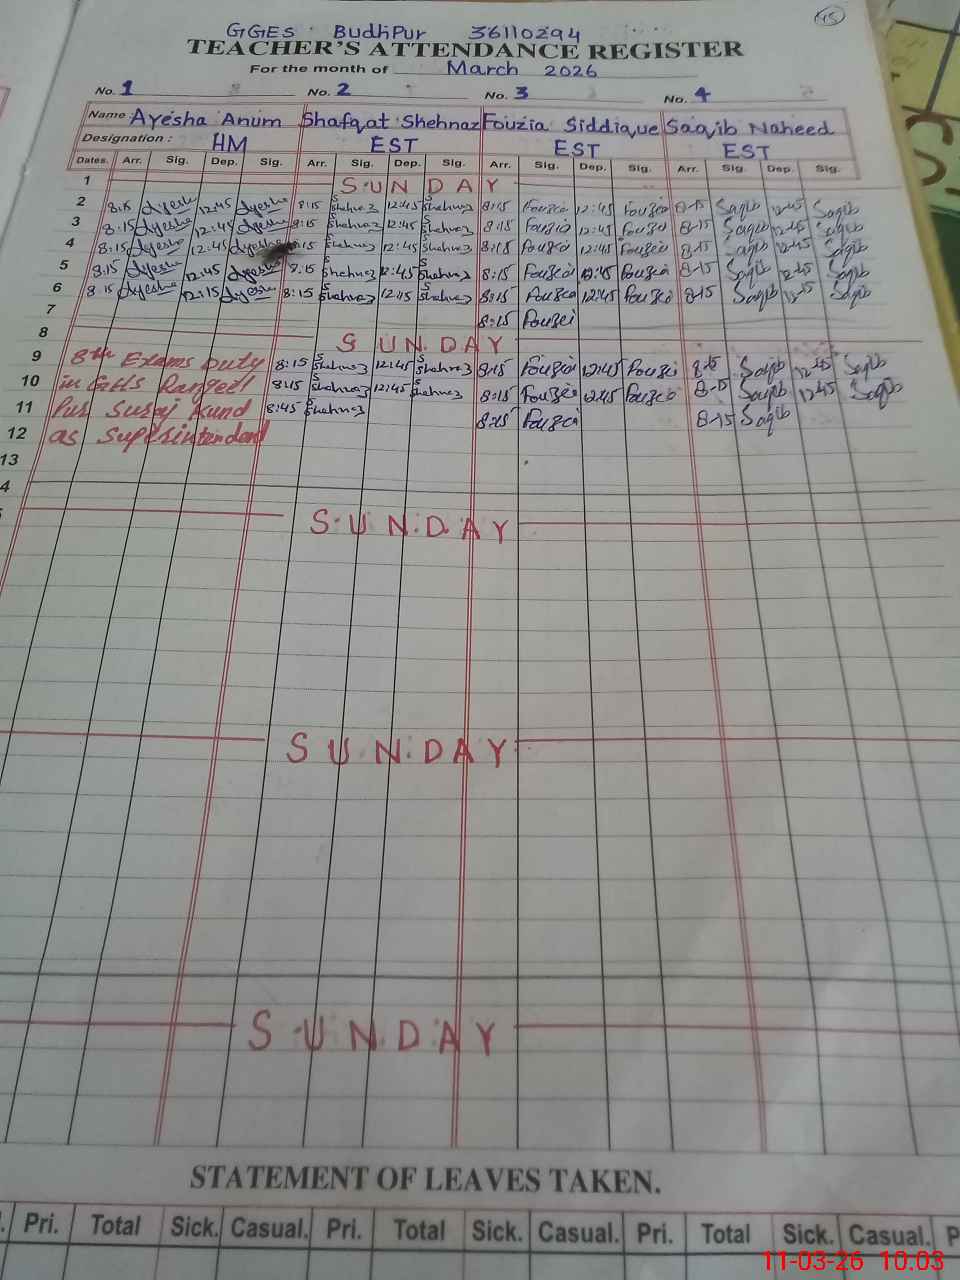 45
GGES. BudhPur 36110294
TEACHER'S ATTENDANCE REGISTER
For the month of March 2026
No. 1 No. 2 No. 3 No. 4
Name Ayesha Anum Shafqat Shehnaz Fouzia Siddique Saqib Naheed
Designation : HM EST EST EST
Dates. Arr. Sig. Dep. Sig. Arr. Sig. Dep. Sig. Arr. Sig. Dep. Sig. Arr. Sig. Dep. Sig.
1 SUNDAY
2 8:15 Ayesha 12:45 Ayesha 8:15 Shehnaz 12:45 Shehnaz 8:15 Fouzia 12:45 Fouzia 8-15 Saqib 12-45 Saqib
3 8:15 Ayesha 12:45 Ayesha 8:15 Shehnaz 12:45 Shehnaz 8:15 Fouzia 12:45 Fouzia 8-15 Saqib 12-45 Saqib
4 8:15 Ayesha 12:45 Ayesha 8:15 Shehnaz 12:45 Shehnaz 8:15 Fouzia 12:45 Fouzia 8-15 Saqib 12-45 Saqib
5 8:15 Ayesha 12:45 Ayesha 8:15 Shehnaz 12:45 Shehnaz 8:15 Fouzia 12:45 Fouzia 8-15 Saqib 12-45 Saqib
6 8:15 Ayesha 12:15 Ayesha 8:15 Shehnaz 12:15 Shehnaz 8:15 Fouzia 12:45 Fouzia 8-15 Saqib Saqib
7 8:15 Fouzia
8 SUNDAY
9 8th Exams Duty 8:15 Shehnaz 12:45 Shehnaz 8:15 Fouzia 12:45 Fouzia 8-15 Saqib 12-45 Saqib
10 in 8:15 Shehnaz 12:45 Shehnaz 8:15 Fouzia 12:45 Fouzia 8-15 Saqib 12:45 Saqib
11 Pur Suraj Kund 8:45 Shehnaz 8:15 Fouzia 8-15 Saqib
12 as Superintendend
13
4
SUNDAY
SUNDAY
SUNDAY
STATEMENT OF LEAVES TAKEN.
Pri. Total Sick. Casual. Pri. Total Sick. Casual. Pri. Total Sick. Casual. P
11-03-26 10.03